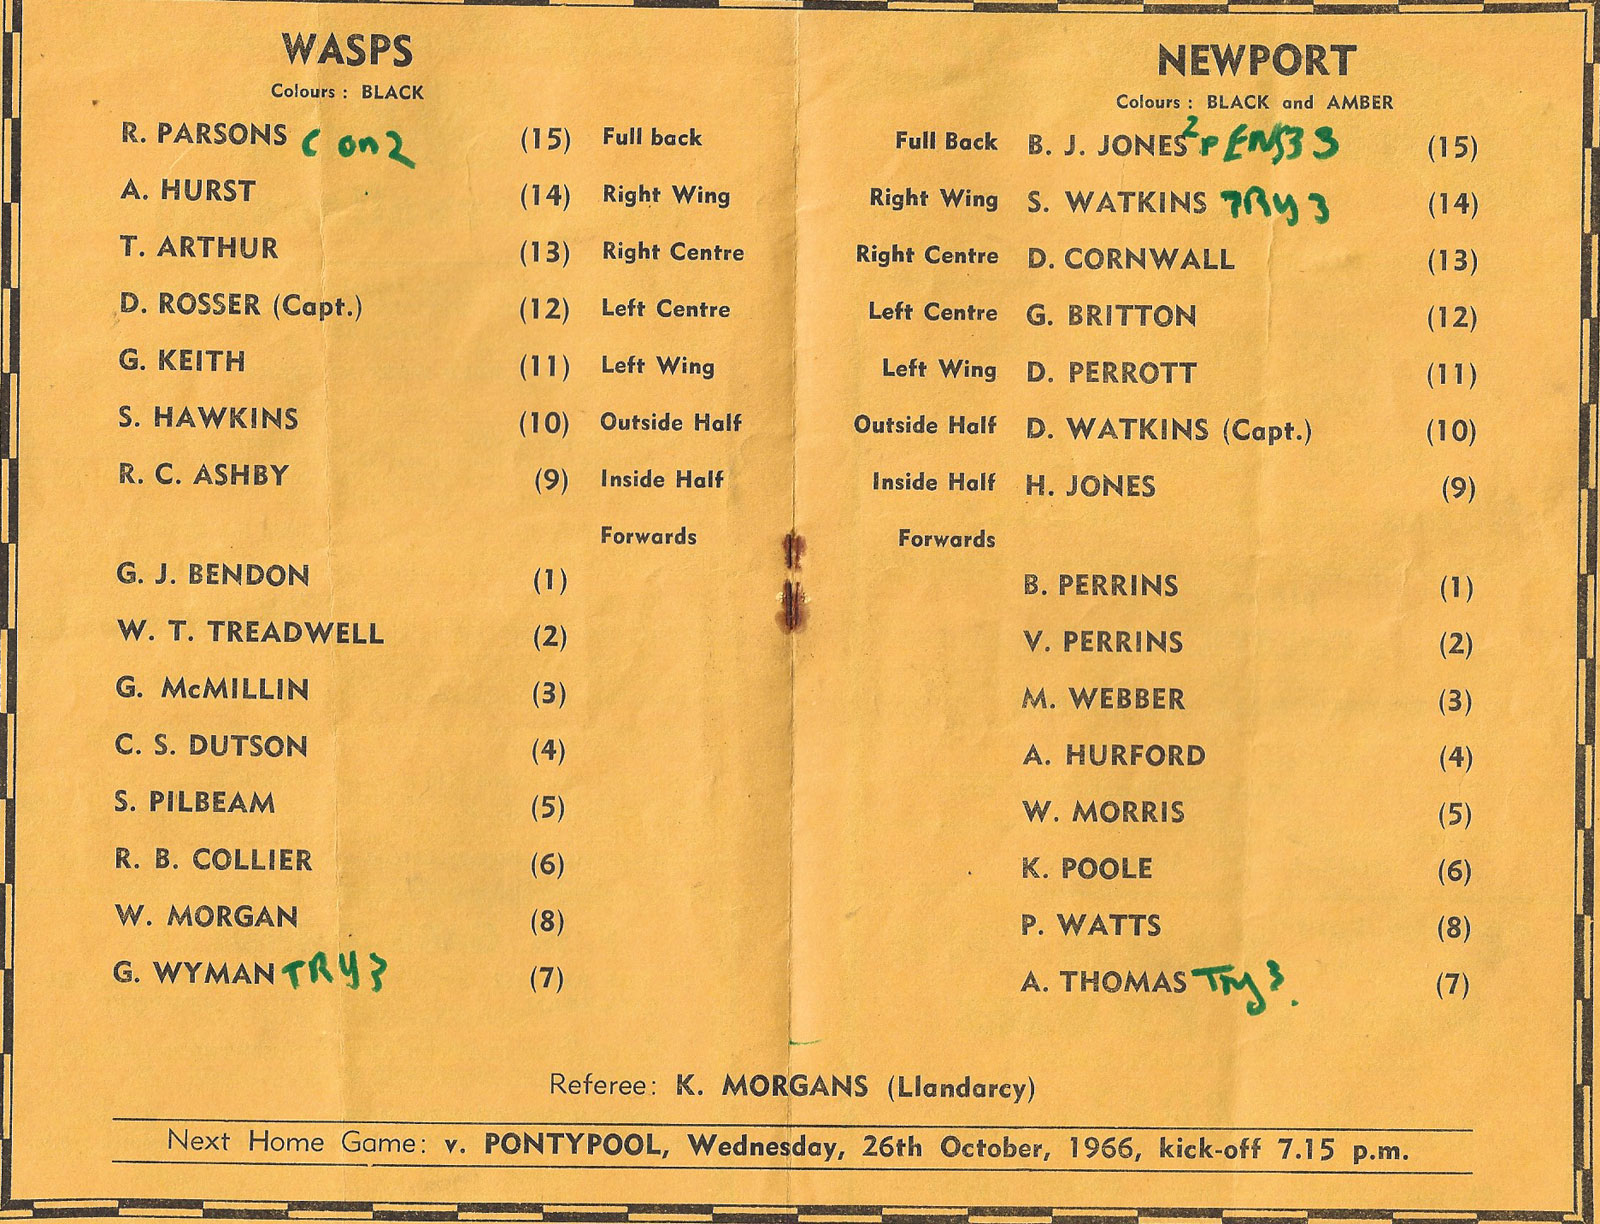 WASPS
Colours : BLACK
R. PARSONS C on 2 (15) Full back
A. HURST (14) Right Wing
T. ARTHUR (13) Right Centre
D. ROSSER (Capt.) (12) Left Centre
G. KEITH (11) Left Wing
S. HAWKINS (10) Outside Half
R. C. ASHBY (9) Inside Half
Forwards
G. J. BENDON (1)
W. T. TREADWELL (2)
G. McMILLIN (3)
C. S. DUTSON (4)
S. PILBEAM (5)
R. B. COLLIER (6)
W. MORGAN (8)
G. WYMAN TRY 3 (7)
NEWPORT
Colours : BLACK and AMBER
Full Back B. J. JONES 2 PENS 3 3 (15)
Right Wing S. WATKINS TRY 3 (14)
Right Centre D. CORNWALL (13)
Left Centre G. BRITTON (12)
Left Wing D. PERROTT (11)
Outside Half D. WATKINS (Capt.) (10)
Inside Half H. JONES (9)
Forwards
B. PERRINS (1)
V. PERRINS (2)
M. WEBBER (3)
A. HURFORD (4)
W. MORRIS (5)
K. POOLE (6)
P. WATTS (8)
A. THOMAS Try 3. (7)
Referee: K. MORGANS (Llandarcy)
Next Home Game: v. PONTYPOOL, Wednesday, 26th October, 1966, kick-off 7.15 p.m.